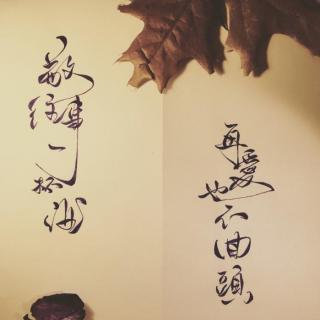 敬往事一杯酒
再愛也不回頭